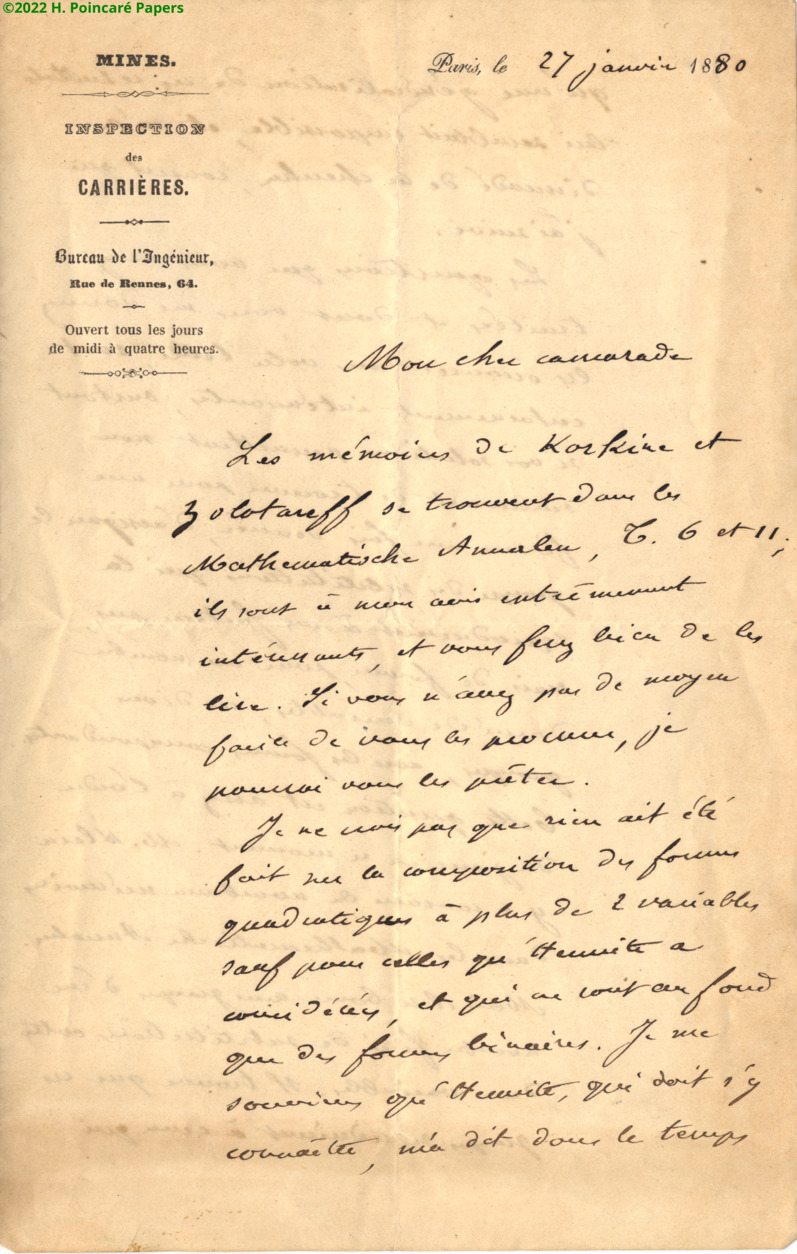 ©2022 H. Poincaré Papers
MINES.
INSPECTION
des
CARRIÈRES.
Bureau de l'Ingénieur,
Rue de Rennes, 64.
Ouvert tous les jours
de midi à quatre heures.
Paris, le 27 janvier 1880
Mon cher camarade
Les mémoires de Korkine et
Zolotareff se trouvent dans les
Mathematische Annalen, T. 6 et 11;
ils sont à mon avis extrêmement
intéressants, et vous ferez bien de les
lire. Si vous n'avez pas de moyen
facile de vous les procurer, je
pourrai vous les prêter.
Je ne crois pas que rien ait été
fait sur la composition des formes
quadratiques à plus de 2 variables
sauf pour celles qu'Hermite a
considérées, et qui ne sont au fond
que des formes binaires. Je me
souviens qu'Hermite, qui doit s'y
connaître, m'a dit dans le temps